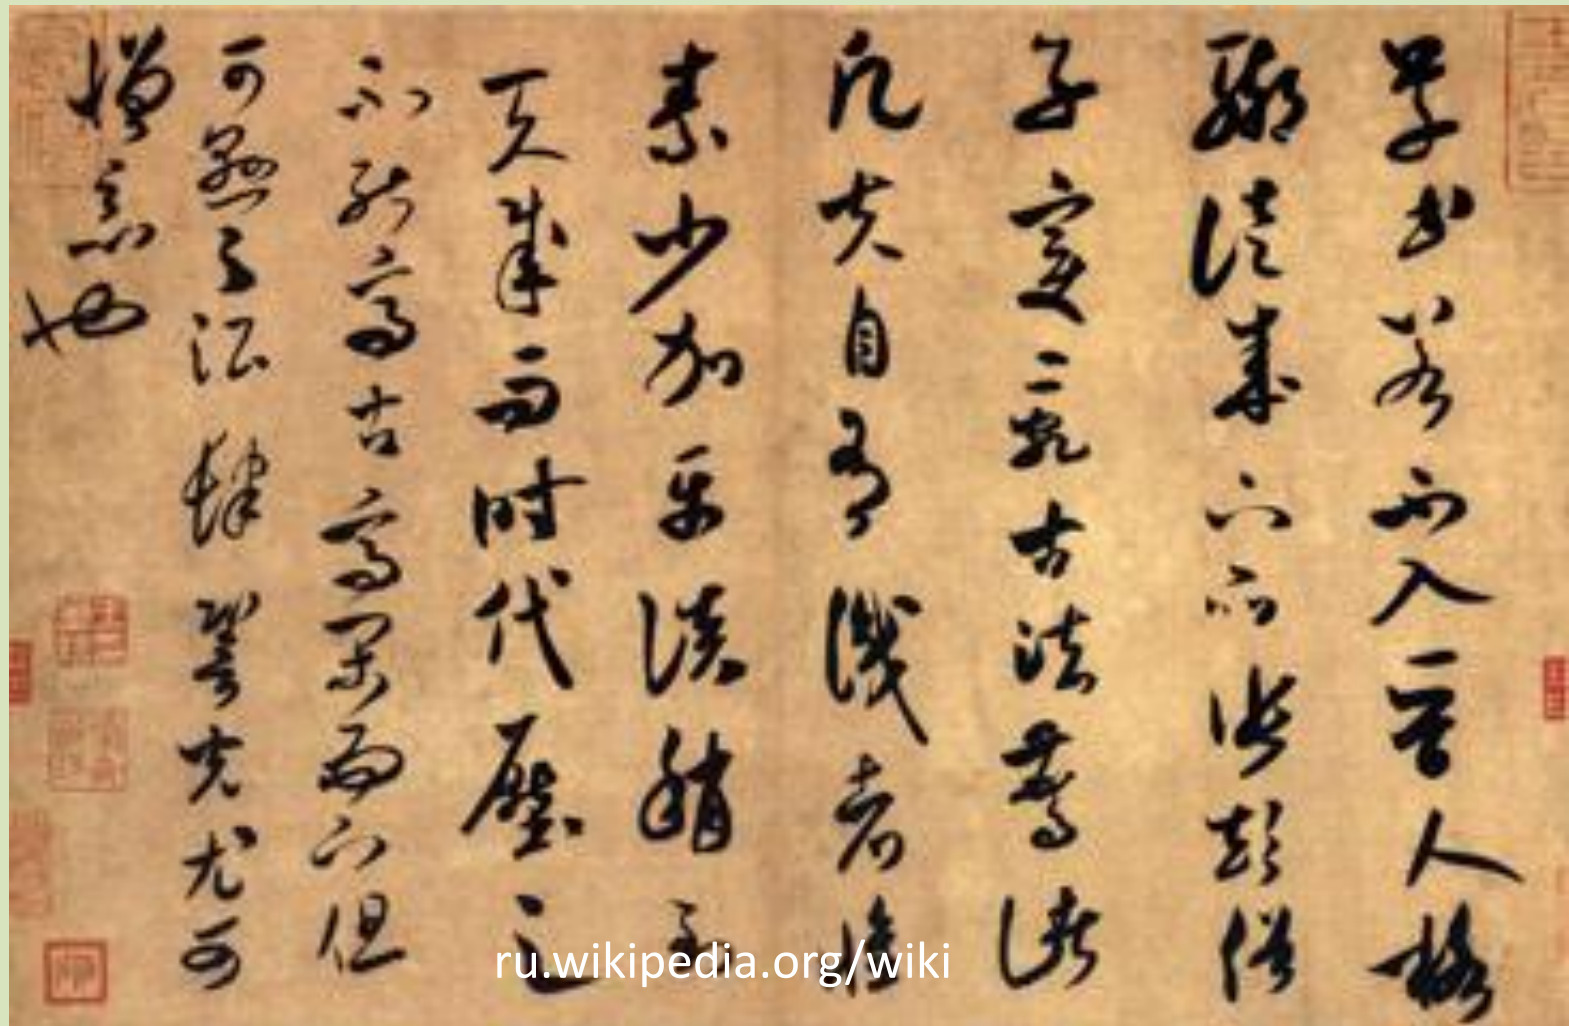 草書若不入晉人格
輒徒成下品張顛俗
子變亂古法驚諸
凡夫自有識者懷
素少加平淡稍到
天成而時代壓之
不能高古高閑而下但
可懸之酒肆䛒光尤可
憎惡也
ru.wikipedia.org/wiki